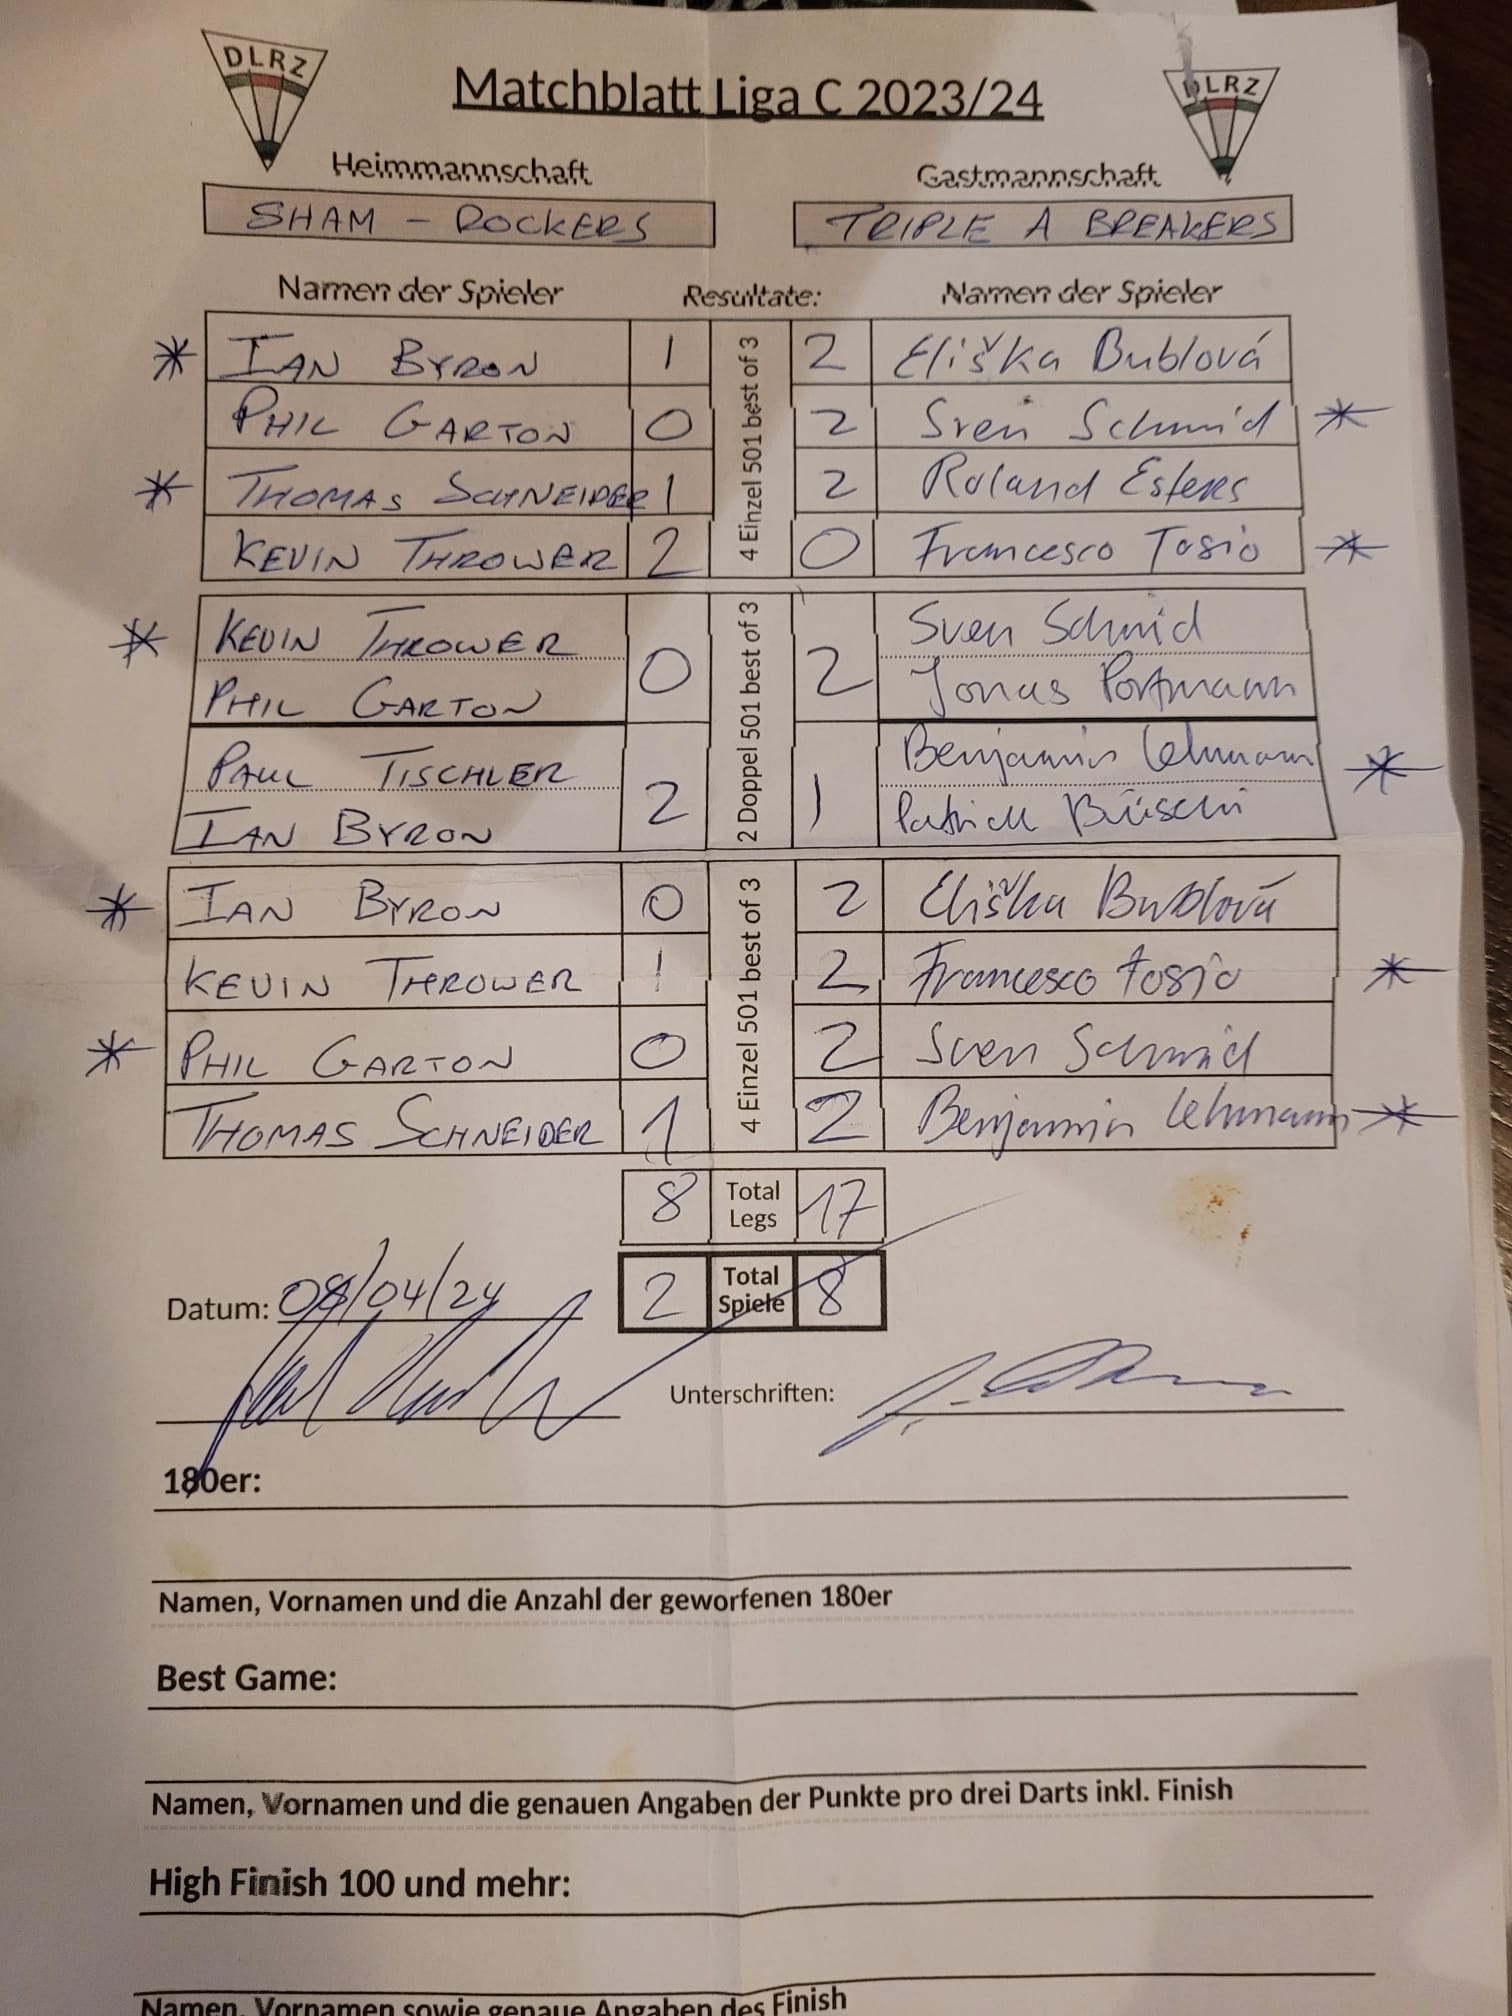 DLRZ
Matchblatt Liga C 2023/24
DLRZ
Heimmannschaft Gastmannschaft
SHAM - ROCKERS TRIPLE A BREAKERS
Namen der Spieler Resultate: Namen der Spieler
* IAN BYRON 1 2 Eliška Bublová
PHIL GARTON 0 2 Sven Schmid *
* THOMAS SCHNEIDER 1 2 Roland Esteres
KEVIN THROWER 2 0 Francesco Tosio *
4 Einzel 501 best of 3
* KEVIN THROWER 0 2 Sven Schmid
PHIL GARTON Jonas Portmann
PAUL TISCHLER 2 1 Benjamin Lehmann *
IAN BYRON Patrick Büschi
2 Doppel 501 best of 3
* IAN BYRON 0 2 Eliška Bublová
KEVIN THROWER 1 2 Francesco Tosio *
* PHIL GARTON 0 2 Sven Schmid
THOMAS SCHNEIDER 1 2 Benjamin Lehmann *
4 Einzel 501 best of 3
8 Total Legs 17
2 Total Spiele 8
Datum: 08/04/24
Unterschriften:
180er:
Namen, Vornamen und die Anzahl der geworfenen 180er
Best Game:
Namen, Vornamen und die genauen Angaben der Punkte pro drei Darts inkl. Finish
High Finish 100 und mehr:
Namen, Vornamen sowie genaue Angaben des Finish